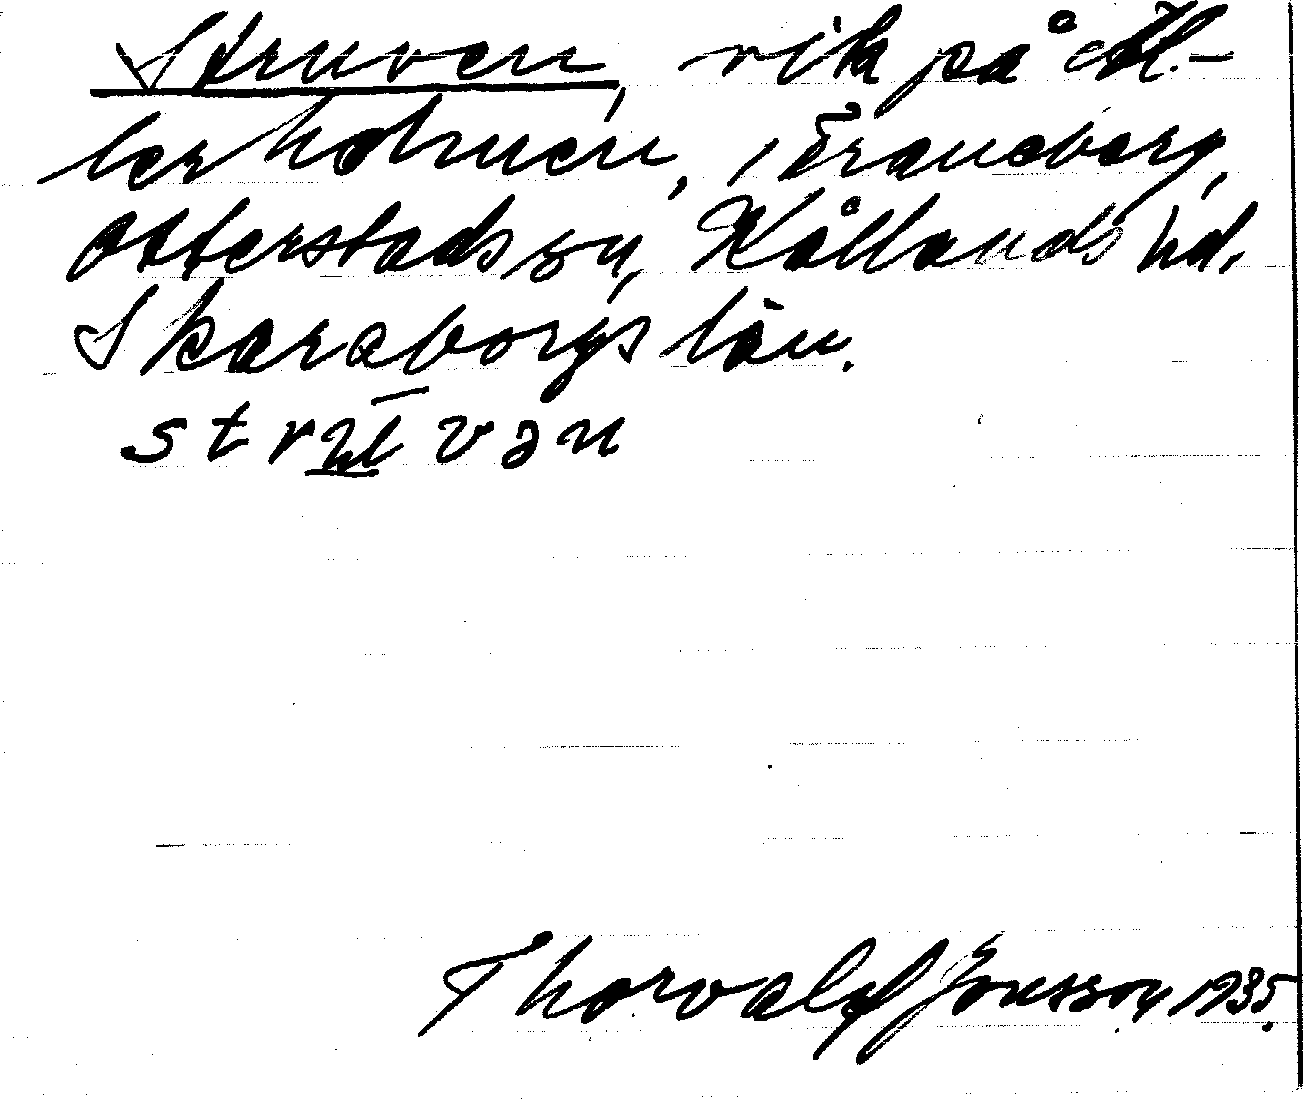 Struven, vik på Al-
lerholmen, Traneberg,
Otterstads sn, Kållands hd.
Skaraborgs län.
strūvən
Thorvald Jonsson 1935.